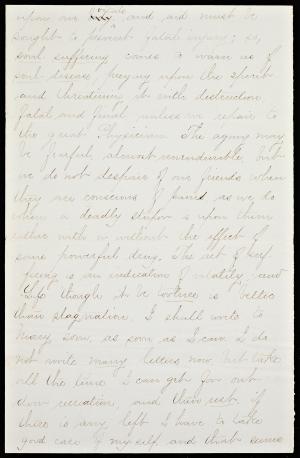 upon our body and aid must be
sought to prevent fatal injury; so,
soul suffering comes to warn us of
soul disease, preying upon the spirit
and threatening it with destruction
fatal and final unless we repair to
the great Physician. The agony may
be fearful, almost unendurable, but
we do not despair of our friends when
they are conscious of pain as we do
when a deadly stupor is upon them
either with or without the effect of
some powerful drug. The act of suf-
fering is an indication of vitality, and
Life though it be torture is better
than stagnation. I shall write to
Missy soon, as soon as I can. I do
not write many letters now, but take
all the time I can get for out-
door recreation, and then rest if
there is any left. I have to take
good care of myself and that seems